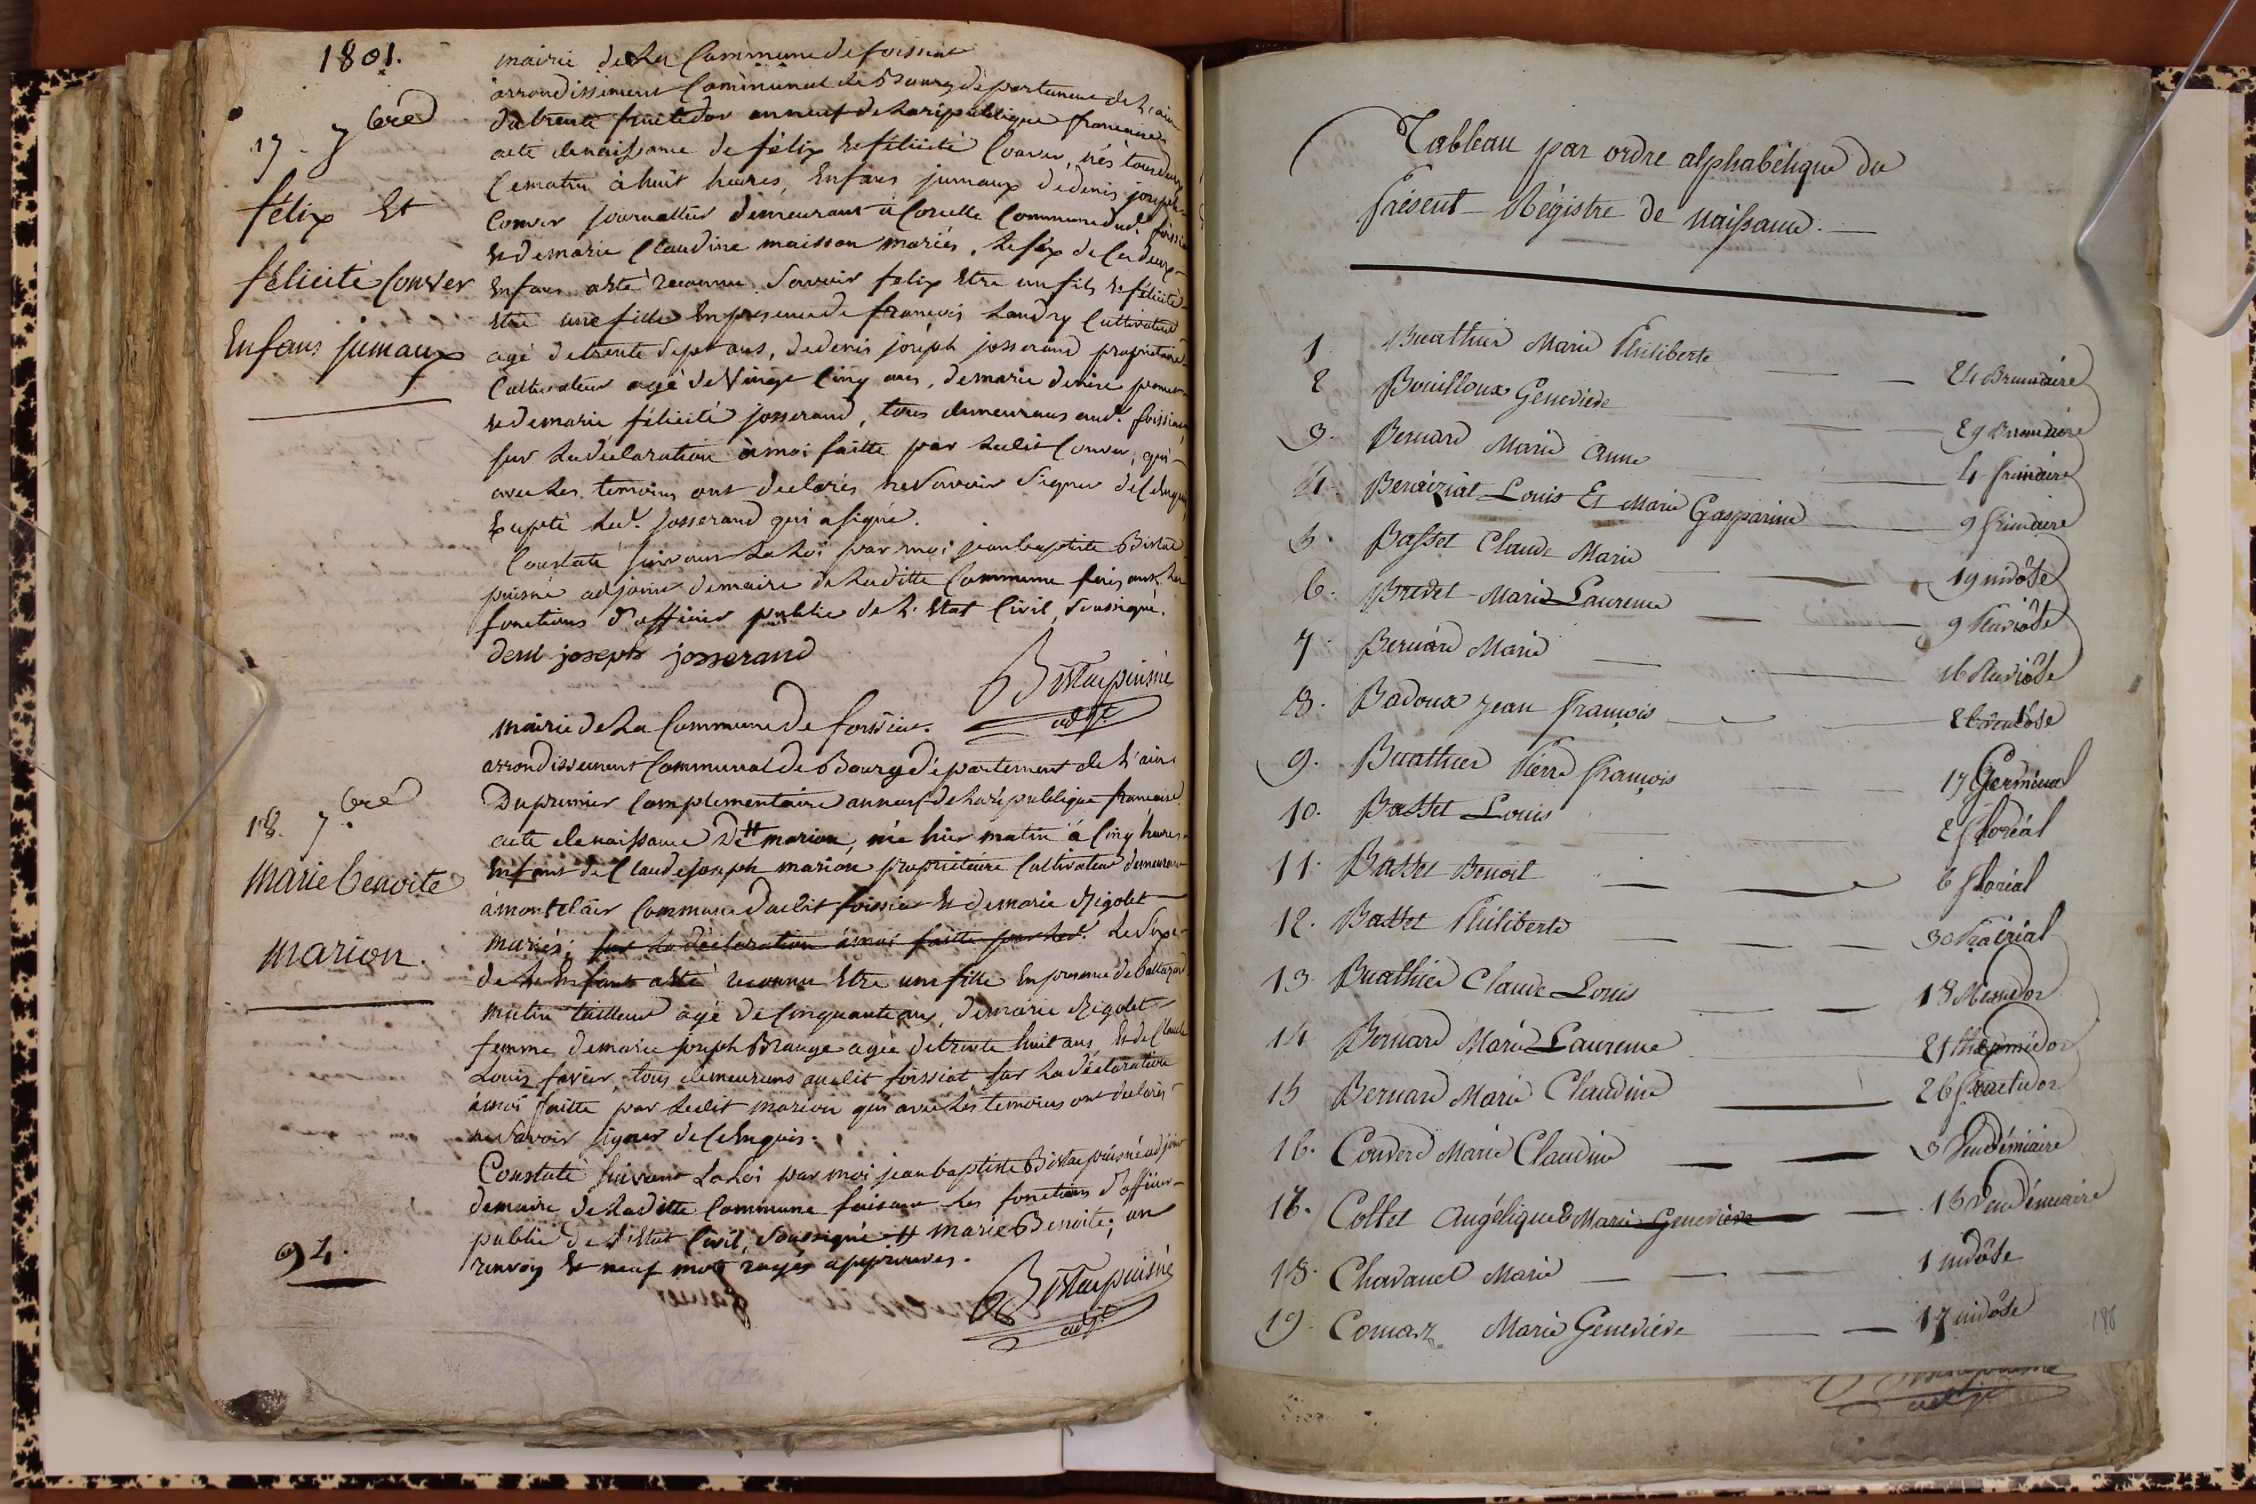 1801.
17. 7bre
félix Et
félicité Conver
Enfans jumaux
mairie de La Commune de foissiat
arrondissement Communal de Bourg département de L'ain
du trente fructidor an neuf de La république francaise
acte de naissance de félix et félicité Conver, nés tous deux
Ce matin à huit heures, Enfans jumaux de denis joseph
Conver journallier demeurant à Corcelle Commune dud. foissiat
et de marie Claudine maisson mariés. Le sex de Ces deux
Enfans a été reconnu Savoir felix Etre un fils et félicité
Etre une fille En presence de francois Landry Cultivateur
agé de trente Sept ans, de denis joseph josserand propriétaire
Cultivateur agé de Vingt Cinq ans, de marie denise
et de marie félicité josserand, tous demeurans aud. foissiat,
sur La déclaration à moi faitte par Ledit Conver, qui
avec Les temoins ont declarés ne Savoir Signer de Ce Enquis
Excepté Led. Josserand qui a signé.
Constaté suivant La Loi par moi jean baptiste
puisné adjoint de maire de Laditte Commune faisant Les
fonctions d'officier public de L'Etat Civil, Soussigné.
deni joseph josserand
puisné
adjt.
18. 7bre
Marie benoite
marion.
mairie de La Commune de foissiat.
arrondissement Communal de Bourg département de L'ain
Du premier Complementaire an neuf de La république francaise
acte de naissance De # marion, née hier matin à Cinq heures
Enfant de Claude joseph marion propriétaire Cultivateur demeurant
à montclair Commune dudit foissiat et de marie Rigolet
mariés; sur La déclaration à moi faitte par Led. Le Sexe
de L'Enfant a été reconnu Etre une fille En presence de baltazard
mutin tailleur agé de Cinquante ans, de marie Rigolet
femme de marie joseph Brange agée de trente huit ans, Et de Claude
Louis favier, tous demeurans audit foissiat, sur La déclaration
à moi faitte par Ledit marion qui avec Les temoins ont declarés
ne Savoir signer de Ce Enquis.
Constaté suivant La Loi par moi jean baptiste puisné adjoint
de maire de Laditte Commune faisant Les fonctions d'officier
public de L'Etat Civil, Soussigné # marie Benoite; un
renvoy Et neuf mots rayés approuvés.
puisné
adjt.
94.
Tableau par ordre alphabétique du
Présent Régistre de Naissance.
1 Buathier Marie Philiberte 24 Brumaire
2 Bouilloux Genevieve 29 Brumaire
3. Bernard Marie Anne 4 frimaire
4. Benaiziat Louis Et Marie Gasparine 9 frimaire
5. Basset Claude Marie 19 nivôse
6. Bredet Marie Laurence 9 Pluviôse
7. Bernard Marie 16 Pluviôse
8. Badoux Jean François 2 Ventôse
9. Buathier Pierre François 17 Germinal
10. Basset Louis 2 floréal
11. Basset Benoit 6 floréal
12. Basset Philiberte 30 Prairial
13 Buathier Claude Louis 18 Messidor
14 Bernard Marie Laurence 21 thermidor
15 Bernard Marie Claudine 26 fructidor
16. Conver Marie Claudine 3 Vendémiaire
17. Collet Angélique & Marie Genevieve 15 Vendémiaire
18. Chavanel Marie 1 nivôse
19. Comaz Marie Genevieve 17 nivôse
186